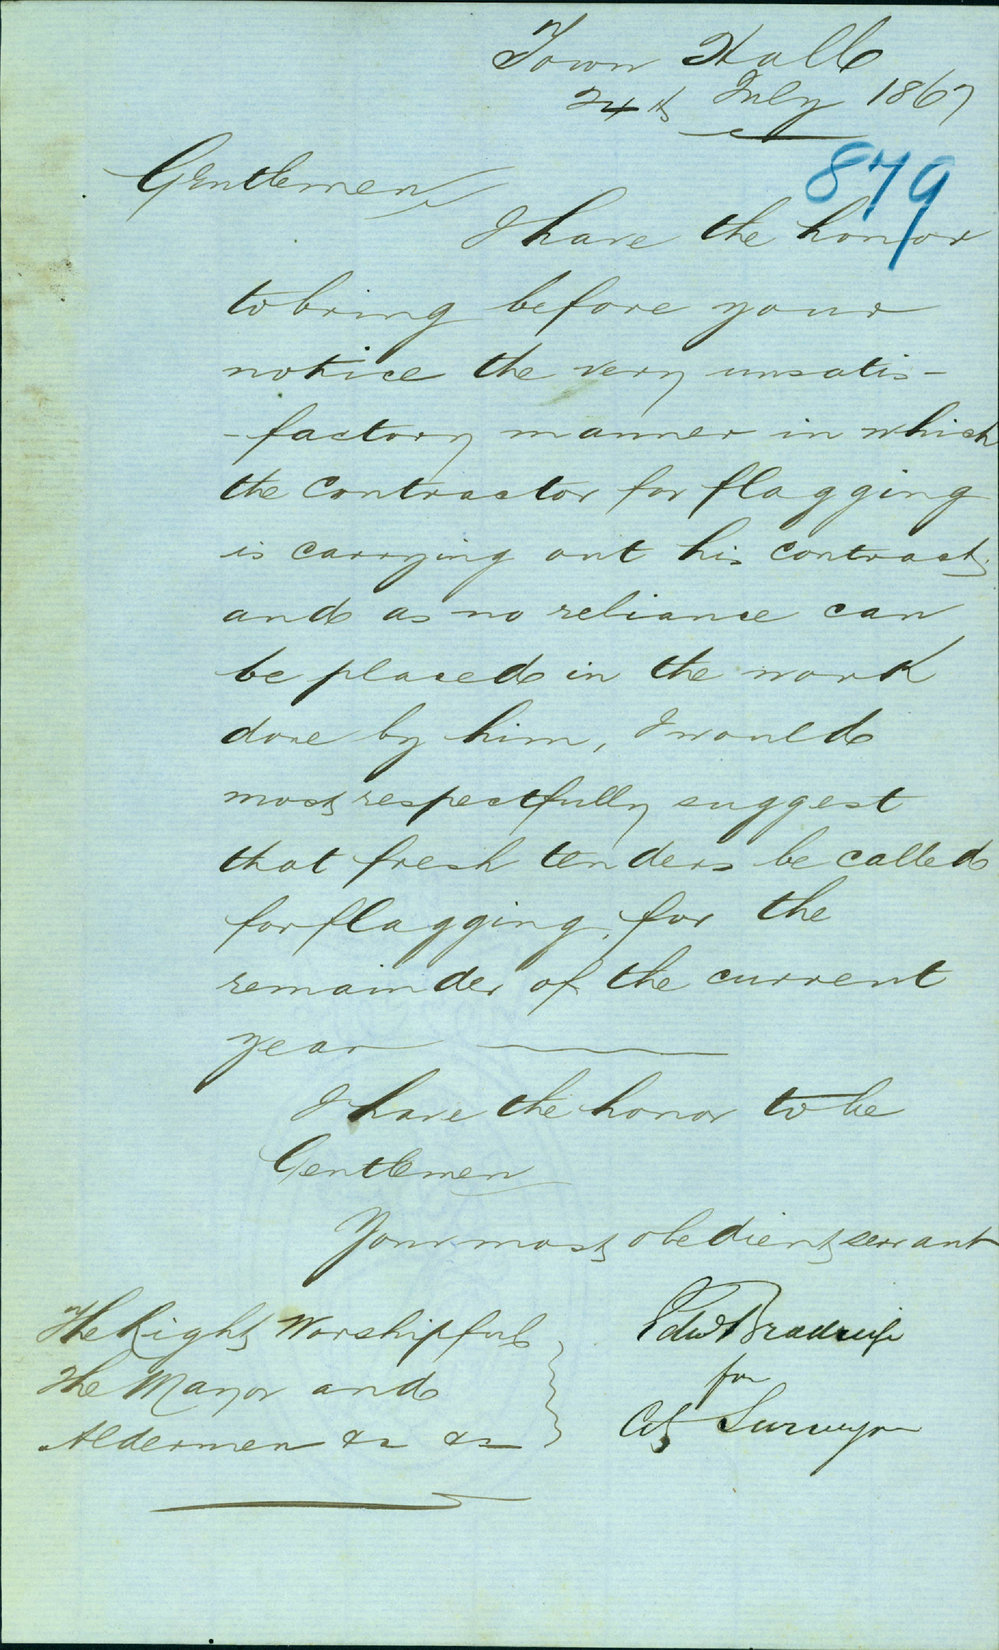 Town Hall
24th July 1867
879
Gentlemen
I have the honor
to bring before your
notice the very unsatis-
-factory manner in which
the Contractor for flagging
is carrying out his contract,
and as no reliance can
be placed in the work
done by him, I would
most respectfully suggest
that fresh tenders be called
for flagging, for the
remainder of the current
year
I have the honor to be
Gentlemen
Your most obedient servant
The Right Worshipful
The Mayor and
Aldermen &c &c
Edwd Bradridge
for
City Surveyor